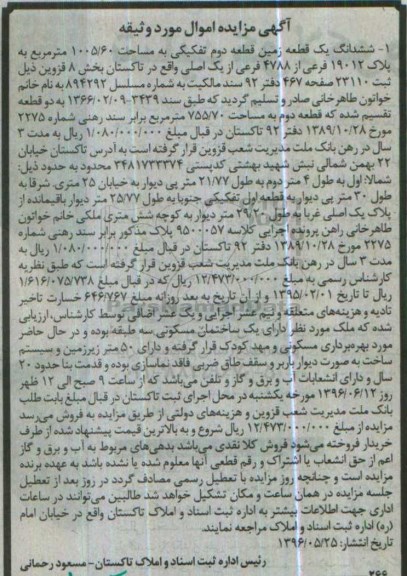 آگهی مزایده اموال مورد وثیقه
۱- ششدانگ یک قطعه زمین قطعه دوم تفکیکی به مساحت ۱۰۰۵/۶۰ مترمربع به
پلاک ۱۹۰۱۲ فرعی از ۴۷۸۸ فرعی از یک اصلی واقع در تاکستان بخش ۸ قزوین ذیل
ثبت ۲۳۱۱۰ صفحه ۴۶۷ دفتر ۹۲ سند مالکیت به شماره مسلسل ۸۹۴۲۹۲ به نام خانم
خواتون طاهرخانی صادر و تسلیم گردید که طبق سند ۳۴۳۹-۱۳۶۶/۰۲/۰۹ به دو قطعه
تقسیم شده که قطعه دوم به مساحت ۷۵۵/۷۰ مترمربع برابر سند رهنی شماره ۲۲۷۵
مورخ ۱۳۸۹/۱۰/۲۸ دفتر ۹۲ تاکستان در قبال مبلغ ۱/۰۸۰/۰۰۰/۰۰۰ ریال به مدت ۳
سال در رهن بانک ملت مدیریت شعب قزوین قرار گرفته است به آدرس تاکستان خیابان
۲۲ بهمن شمالی نبش شهید بهشتی کدپستی ۳۴۸۱۷۳۳۳۷۴ محدود به حدود ذیل:
شمالا: اول به طول ۴ متر دوم به طول ۲۱/۷۷ متر پی دیوار به خیابان ۲۵ متری. شرقا به
طول ۳۰ متر پی دیوار به قطعه اول تفکیکی جنوبا به طول ۲۵/۷۷ متر دیوار باقیمانده از
پلاک یک اصلی غربا به طول ۲۹/۲۰ متر دیوار به کوچه شش متری ملکی خانم خواتون
طاهرخانی راهن پرونده اجرایی کلاسه ۹۵۰۰۰۵۷ پلاک مذکور برابر سند رهنی شماره
۲۲۷۵ مورخ ۱۳۸۹/۱۰/۲۸ دفتر ۹۲ تاکستان در قبال مبلغ ۱/۰۸۰/۰۰۰/۰۰۰ ریال به
مدت ۳ سال در رهن بانک ملت مدیریت شعب قزوین قرار گرفته است که طبق نظریه
کارشناس رسمی به مبلغ ۱۲/۴۷۳/۰۰۰/۰۰۰ ریال که در قبال مبلغ ۱/۶۱۶/۰۷۵/۷۳۸
ریال تا تاریخ ۱۳۹۵/۰۲/۰۱ و از آن تاریخ به بعد روزانه مبلغ ۶۴۶/۷۶۷ خسارت تاخیر
تادیه و هزینه‌های متعلقه و نیم عشر اجرایی و یک عشر اضافی توسط کارشناس، ارزیابی
شده که ملک مورد نظر دارای یک ساختمان مسکونی سه طبقه بوده و در حال حاضر
مورد بهره‌برداری مسکونی و مهد کودک قرار گرفته و دارای ۵۰ متر زیرزمین و سیستم
ساخت به صورت دیوار باربر و سقف طاق ضربی فاقد نماسازی بوده و قدمت بنا حدود ۲۰
سال و دارای انشعابات آب و برق و گاز و تلفن می‌باشد که از ساعت ۹ صبح الی ۱۲ ظهر
روز ۱۳۹۶/۰۶/۱۲ مورخه یکشنبه در محل اجرای ثبت تاکستان در قبال مبلغ بابت طلب
بانک ملت مدیریت شعب قزوین و هزینه‌های دولتی از طریق مزایده به فروش می‌رسد
مزایده از مبلغ ۱۲/۴۷۳/۰۰۰/۰۰۰ ریال شروع و به بالاترین قیمت پیشنهاد شده از طرف
خریدار فروخته می‌شود فروش کلا نقدی می‌باشد بدهی‌های مربوط به آب و برق و گاز
اعم از حق انشعاب یا اشتراک و رقم قطعی آنها معلوم شده یا نشده باشد به عهده برنده
مزایده است و چنانچه روز مزایده با تعطیل رسمی مصادف گردد در روز بعد از تعطیل
جلسه مزایده در همان ساعت و مکان تشکیل خواهد شد طالبین می‌توانند در ساعات
اداری جهت اطلاعات بیشتر به اداره ثبت اسناد و املاک تاکستان واقع در خیابان امام
(ره) اداره ثبت اسناد و املاک مراجعه نمایند.
تاریخ انتشار: ۱۳۹۶/۰۵/۲۵
رئیس اداره ثبت اسناد و املاک تاکستان- مسعود رحمانی